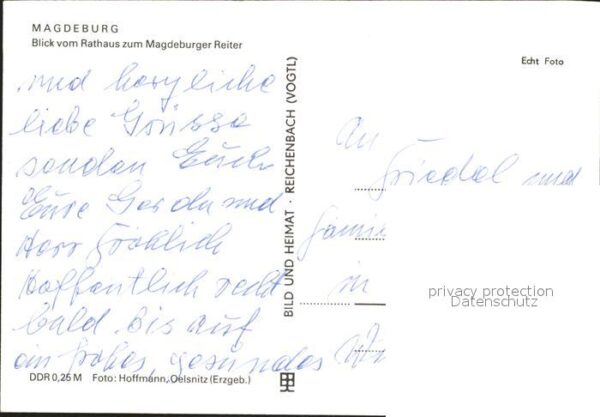 MAGDEBURG
Blick vom Rathaus zum Magdeburger Reiter
und herzliche
liebe Grüsse
senden Euch
Eure Gerda und
Herr Fröhlich
Hoffentlich recht
bald. Bis auf
ein frohes, gesundes
DDR 0,25 M Foto: Hoffmann, Oelsnitz (Erzgeb.)
BILD UND HEIMAT · REICHENBACH (VOGTL)
Echt Foto
An
Friedel und
in
privacy protection
Datenschutz